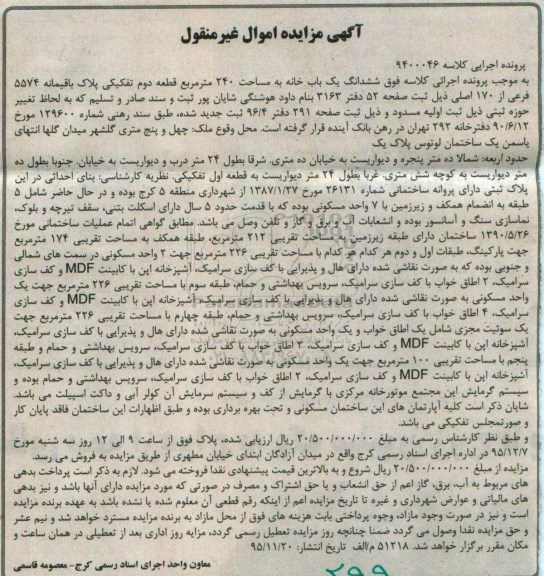 آگهی مزایده اموال غیرمنقول
پرونده اجرایی کلاسه ۹۴۰۰۰۴۶
به موجب پرونده اجرائی کلاسه فوق ششدانگ یک باب خانه به مساحت ۲۴۰ مترمربع قطعه دوم تفکیکی پلاک باقیمانه ۵۵۷۴
فرعی از ۱۷۰ اصلی ذیل ثبت صفحه ۵۲ دفتر ۳۱۶۳ بنام داود هوشنگی شایان پور ثبت و سند صادر و تسلیم که به لحاظ تغییر
حوزه ثبتی ذیل ثبت اولیه مسدود و ذیل ثبت صفحه ۲۹۱ دفتر ۹۶/۴ ثبت جدید شده، طبق سند رهنی شماره ۱۲۹۶۰۰ مورخ
۹۰/۶/۱۲ دفترخانه ۲۹۲ تهران در رهن بانک آینده قرار گرفته است. محل وقوع ملک: چهل و پنج متری گلشهر میدان گلها انتهای
یاسمن یک ساختمان لوتوس پلاک یک
حدود اربعه: شمالا ده متر پنجره و دیواریست به خیابان ده متری. شرقا بطول ۲۴ متر درب و دیواریست به خیابان. جنوبا بطول ده
متر دیواریست به کوچه شش متری. غربا بطول ۲۴ متر دیواریست به قطعه اول تفکیکی. نظریه کارشناسی: بنای احداثی در این
پلاک ثبتی دارای پروانه ساختمانی شماره ۲۶۱۳۱ مورخ ۱۳۸۷/۱/۲۷ از شهرداری منطقه ۵ کرج بوده و در حال حاضر شامل ۵
طبقه به انضمام همکف و زیرزمین با ۷ واحد مسکونی بوده که با قدمت حدود ۵ سال دارای اسکلت بتنی، سقف تیرچه و بلوک،
نماسازی سنگ و آسانسور بوده و انشعابات آب و برق و گاز و تلفن وصل می باشد. مطابق گواهی اتمام عملیات ساختمانی مورخ
۱۳۹۰/۵/۲۶ ساختمان دارای طبقه زیرزمین با مساحت تقریبی ۲۱۲ مترمربع، طبقه همکف به مساحت تقریبی ۱۷۴ مترمربع
جهت پارکینگ، طبقات اول و دوم هر کدام هر کدام با مساحت تقریبی ۲۲۶ مترمربع جهت ۲ واحد مسکونی در سمت های شمالی
و جنوبی بوده که به صورت نقاشی شده دارای هال و پذیرایی با کف سازی سرامیک، آشپزخانه اپن با کابینت MDF و کف سازی
سرامیک، ۲ اطاق خواب با کف سازی سرامیک، سرویس بهداشتی و حمام، طبقه سوم با مساحت تقریبی ۲۲۶ مترمربع جهت یک
واحد مسکونی به صورت نقاشی شده دارای هال و پذیرایی با کف سازی سرامیک، آشپزخانه اپن با کابینت MDF و کف سازی
سرامیک، ۴ اطاق خواب با کف سازی سرامیک، سرویس بهداشتی و حمام، طبقه چهارم با مساحت تقریبی ۲۲۶ مترمربع جهت
یک سوئیت مجزی شامل یک اطاق خواب و یک واحد مسکونی به صورت نقاشی شده دارای هال و پذیرایی با کف سازی سرامیک،
آشپزخانه اپن با کابینت MDF و کف سازی سرامیک، ۳ اطاق خواب با کف سازی سرامیک، سرویس بهداشتی و حمام و طبقه
پنجم با مساحت تقریبی ۱۰۰ مترمربع جهت یک واحد مسکونی به صورت نقاشی شده دارای هال و پذیرایی با کف سازی سرامیک،
آشپزخانه اپن با کابینت MDF و کف سازی سرامیک، ۲ اطاق خواب با کف سازی سرامیک، سرویس بهداشتی و حمام بوده و
سیستم گرمایش این مجتمع موتورخانه مرکزی با گرمایش از کف و سیستم سرمایش آن کولر آبی و داکت اسپیلت می باشد.
شایان ذکر است کلیه آپارتمان های این ساختمان مسکونی و تحت بهره برداری بوده و طبق اظهارات این ساختمان فاقد پایان کار
و صورتمجلس تفکیکی می باشد.
و طبق نظر کارشناس رسمی به مبلغ ۲۰/۵۰۰/۰۰۰/۰۰۰ ریال ارزیابی شده، پلاک فوق از ساعت ۹ الی ۱۲ روز سه شنبه مورخ
۹۵/۱۲/۷ در اداره اجرای اسناد رسمی کرج واقع در میدان آزادگان ابتدای خیابان مطهری از طریق مزایده به فروش می رسد.
مزایده از مبلغ ۲۰/۵۰۰/۰۰۰/۰۰۰ ریال شروع و به بالاترین قیمت پیشنهادی نقدا فروخته می شود. لازم به ذکر است پرداخت بدهی
های مربوط به آب، برق، گاز اعم از حق انشعاب و یا حق اشتراک و مصرف در صورتی که مورد مزایده دارای آنها باشد و نیز بدهی
های مالیاتی و عوارض شهرداری و غیره تا تاریخ مزایده اعم از اینکه رقم قطعی آن معلوم شده یا نشده باشد به عهده برنده مزایده
است و نیز در صورت وجود مازاد، وجوه پرداختی بابت هزینه های فوق از محل مازاد به برنده مزایده مسترد خواهد شد و نیم عشر
و حق مزایده نقدا وصول می گردد ضمنا چنانچه روز مزایده تعطیل رسمی گردد، مزایه روز اداری بعد از تعطیلی در همان ساعت و
مکان مقرر برگزار خواهد شد. ۵۱۲۱۸ م/الف تاریخ انتشار: ۹۵/۱۱/۲۰
معاون واحد اجرای اسناد رسمی کرج- معصومه قاسمی
۲۹۹